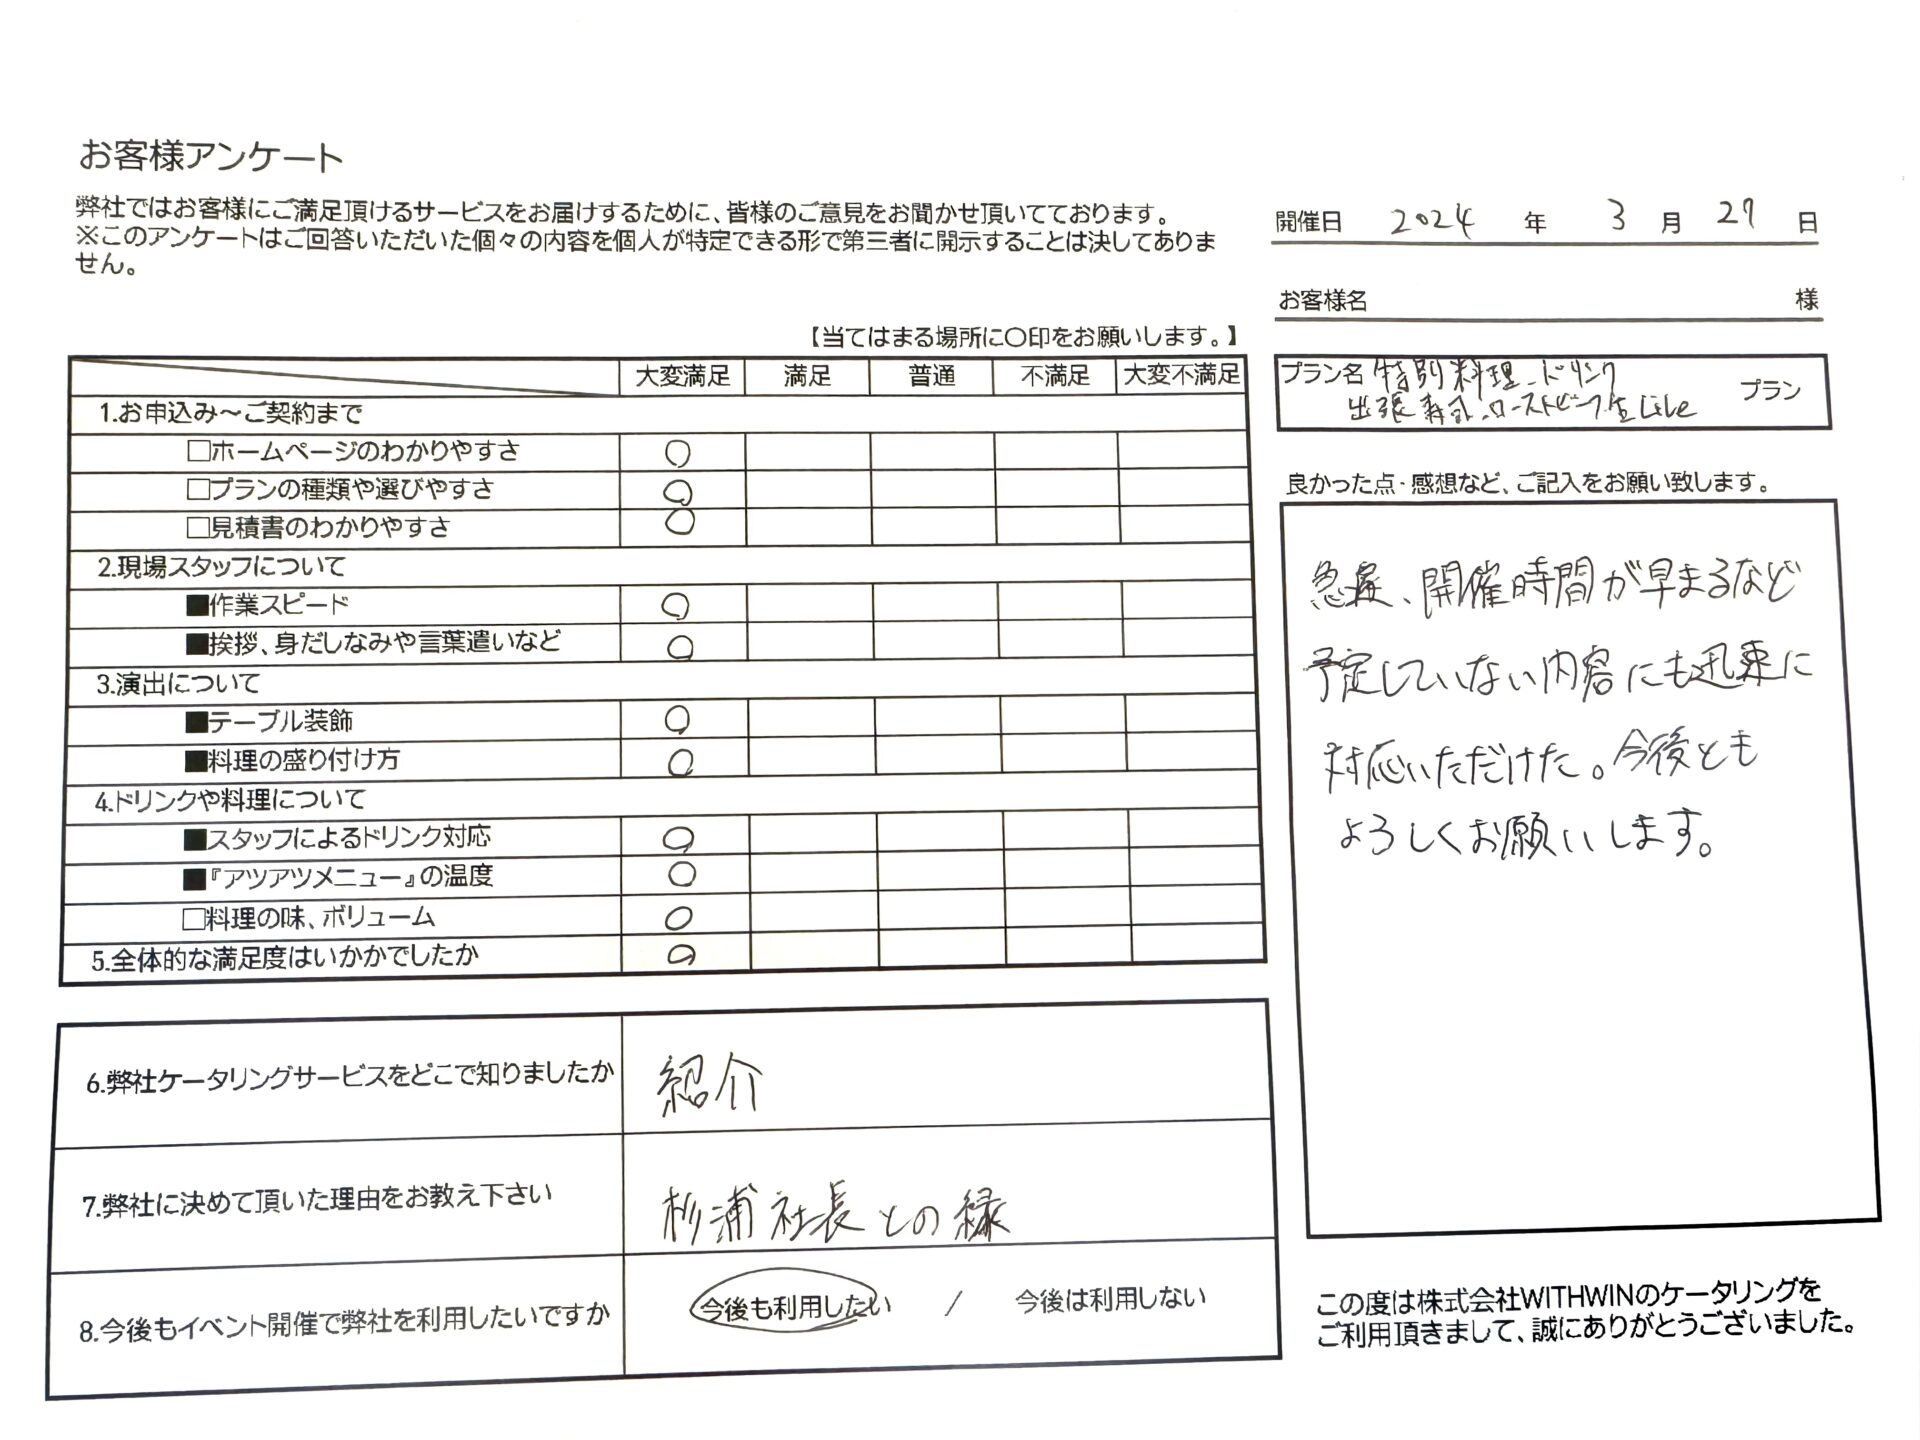 お客様アンケート
弊社ではお客様にご満足頂けるサービスをお届けするために、皆様のご意見をお聞かせ頂いてております。
※このアンケートはご回答いただいた個々の内容を個人が特定できる形で第三者に開示することは決してありま
せん。
開催日 2024 年 3 月 27 日
お客様名 様
【当てはまる場所に〇印をお願いします。】
大変満足 満足 普通 不満足 大変不満足
1.お申込み～ご契約まで
□ホームページのわかりやすさ ○
□プランの種類や選びやすさ ○
□見積書のわかりやすさ ○
2.現場スタッフについて
■作業スピード ○
■挨拶、身だしなみや言葉遣いなど ○
3.演出について
■テーブル装飾 ○
■料理の盛り付け方 ○
4.ドリンクや料理について
■スタッフによるドリンク対応 ○
■『アツアツメニュー』の温度 ○
□料理の味、ボリューム ○
5.全体的な満足度はいかかでしたか ○
プラン名 特別料理、ドリンク
出張寿司、ローストビーフ 生Live
プラン
良かった点・感想など、ご記入をお願い致します。
急遽、開催時間が早まるなど
予定していない内容にも迅速に
対応いただけた。今後とも
よろしくお願いします。
6.弊社ケータリングサービスをどこで知りましたか 紹介
7.弊社に決めて頂いた理由をお教え下さい 杉浦社長との縁
8.今後もイベント開催で弊社を利用したいですか 今後も利用したい / 今後は利用しない
この度は株式会社WITHWINのケータリングを
ご利用頂きまして、誠にありがとうございました。